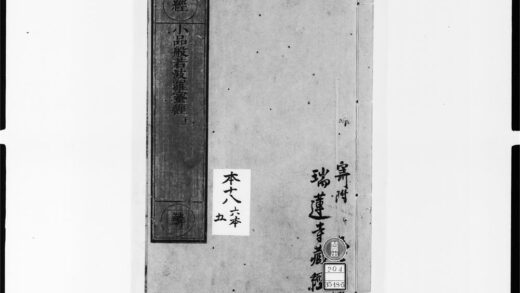 經
小品般若波羅蜜經
寄附
瑞蓮寺藏經
本十八
六本
五
204